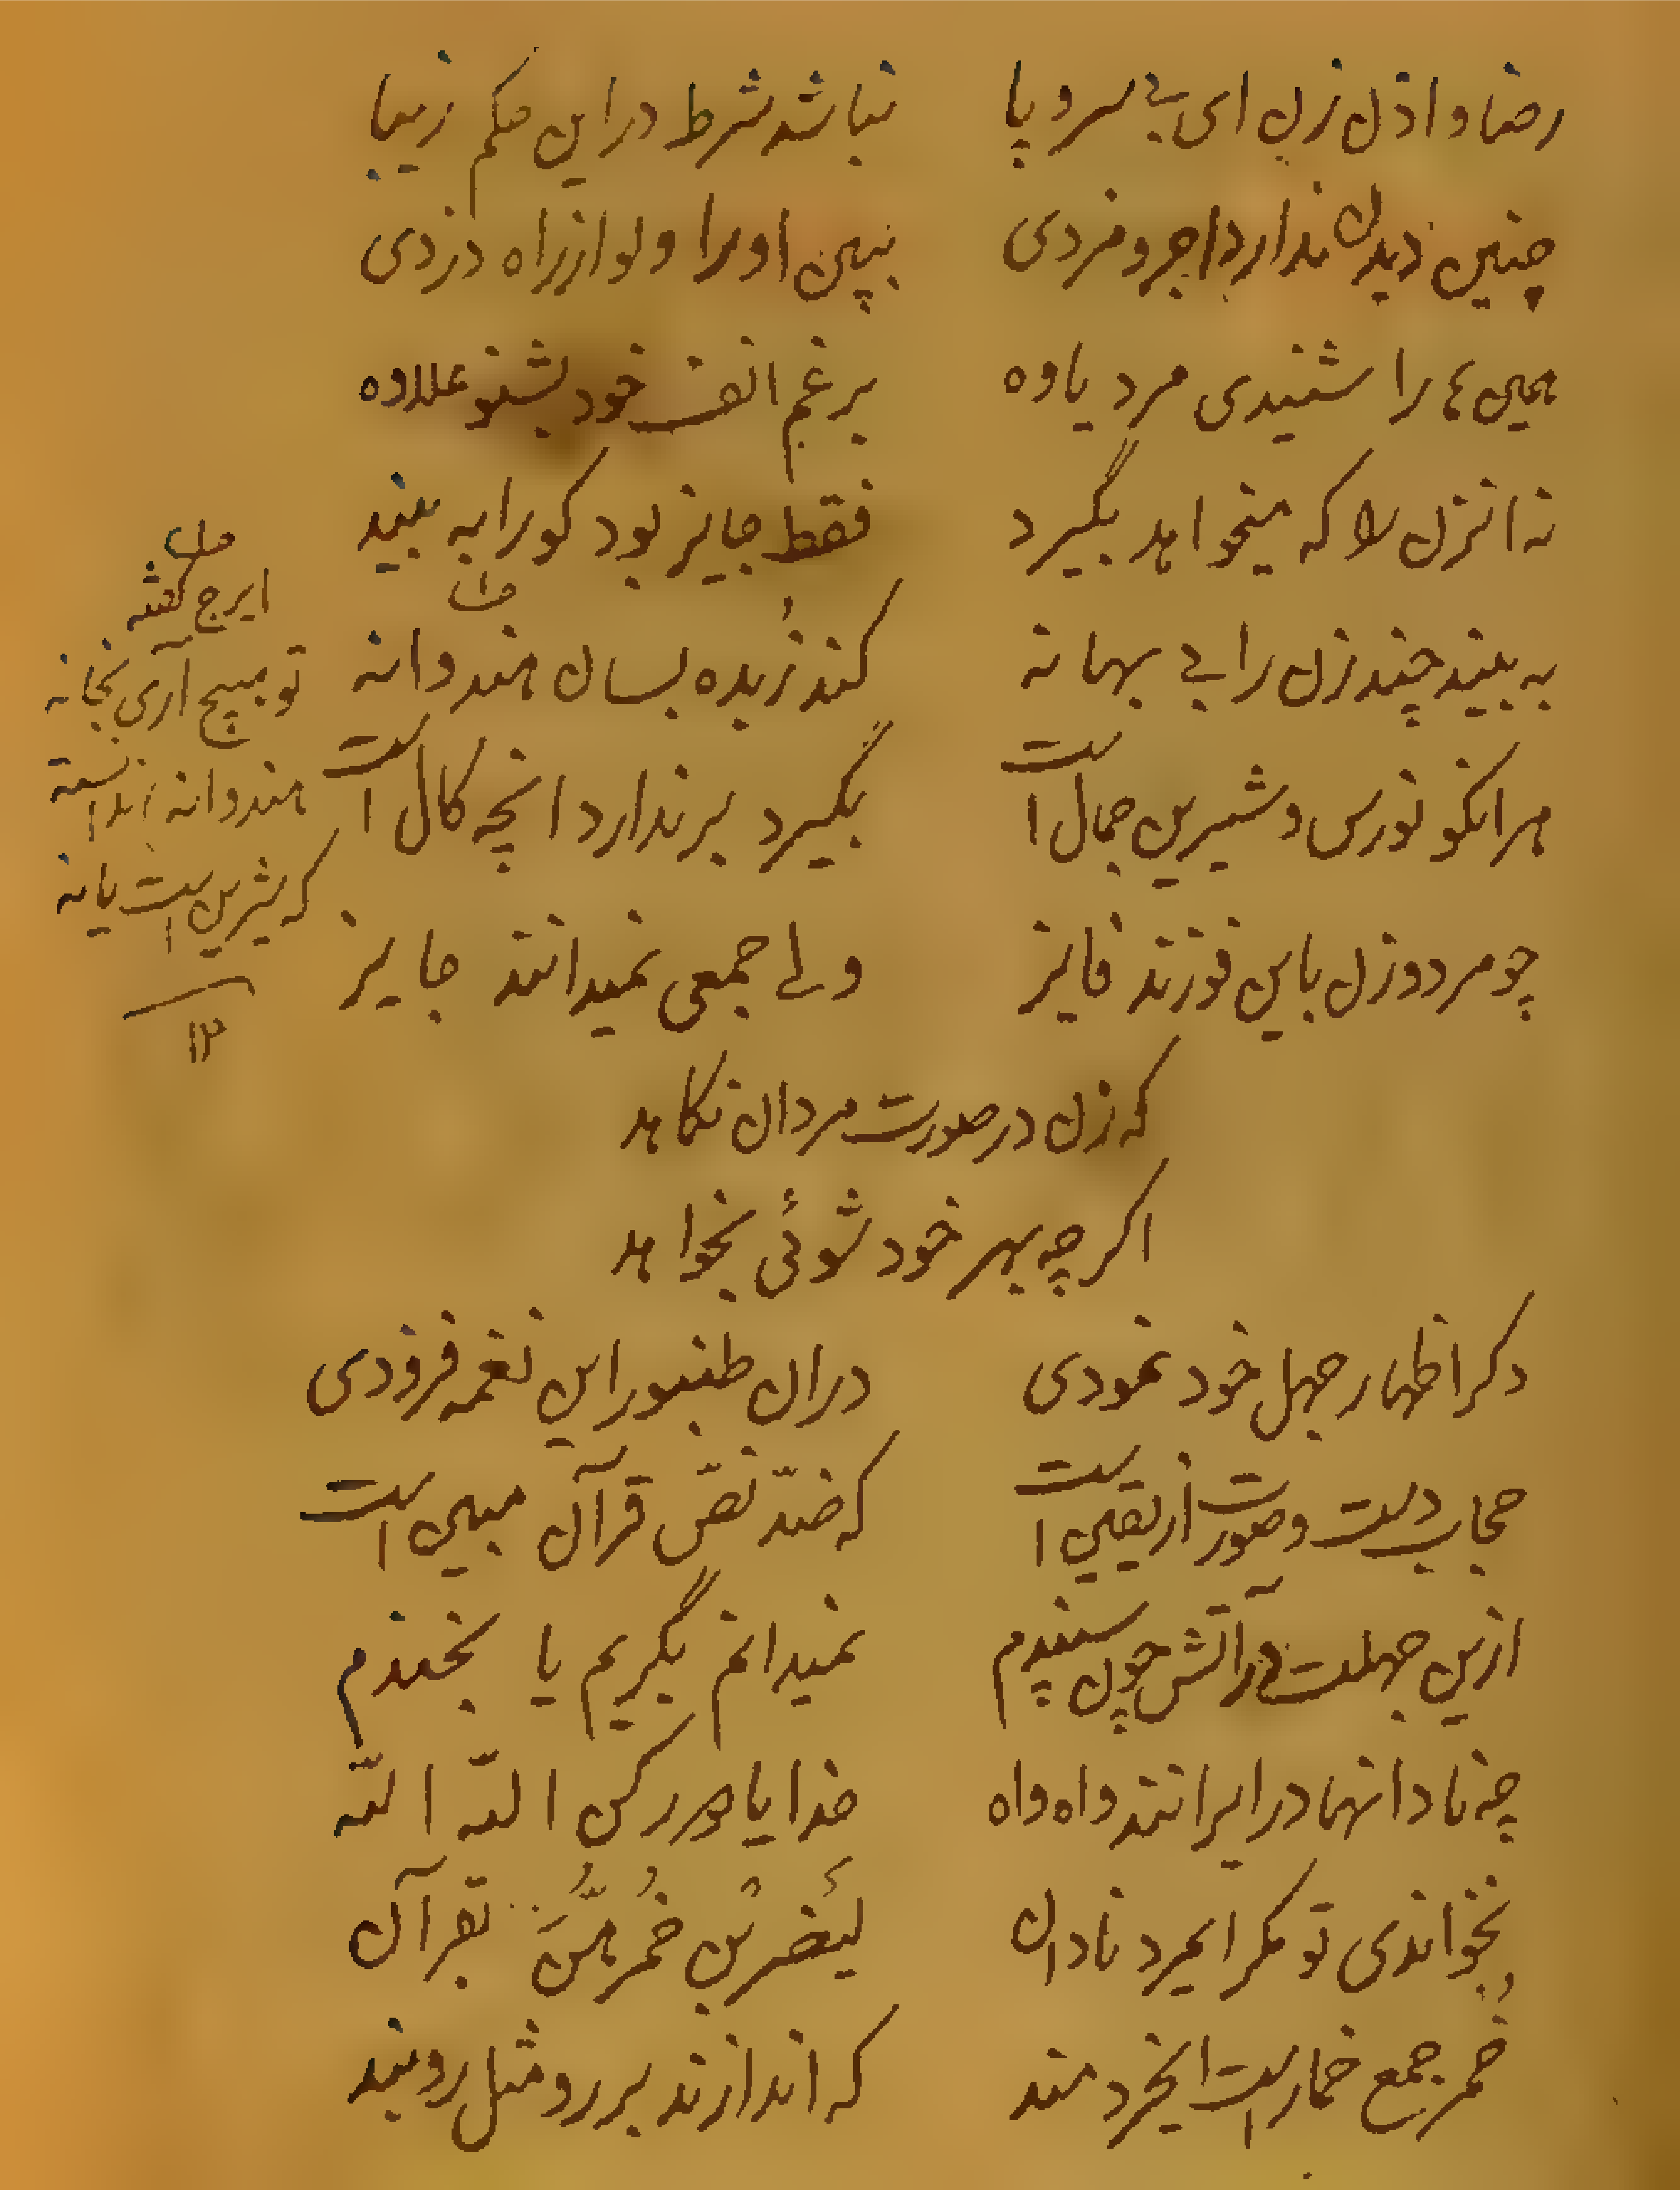 رضا و اذن زن ای بی سر و پا    نباشد شرط در این حکم زیبا
چنین دیدن ندارد اجر و مزدی    ببین او را ولو از راه دزدی
همین ها را شنیدی مرد یاوه    برغم انف خود بشنو علاوه
نه انزن را که میخواهد بگیرد    فقط جایز بود کو را به بیند
به بیند چند زن را بی بهانه    کند زُبده بسان هندوانه
هرانکو نورس و شیرین جمال است    بگیرد برندارد انچه کال است
چو مرد و زن باین فوزند فایز    ولی جمعی نمیدانند جایز
که زن در صورت مردان نکاهد
اکر چه بهر خود شوئی بخواهد
دکر اظهار جهل خود نمودی    دران طنبور این نغمه فزودی
حجاب دست و صورت از یقین است    که ضدّ نصّ قرآن مبین است
ازین جهلت در آتش چون سپندم    نمیدانم بگریم یا بخندم
چه نادانها در ایرانند واه واه    خدایا صبر کن الله الله
نخواندی تو مکر ایمرد نادان    لیَضربْن خُمُرهنَّ بقرآن
خُمر جمع خمار است ایخردمند    که اندازند بر رو مثل روبند
ایرج کفته
تو هیچ آری بخانه
هندوانه
که شیرین است یا نه
۱۲